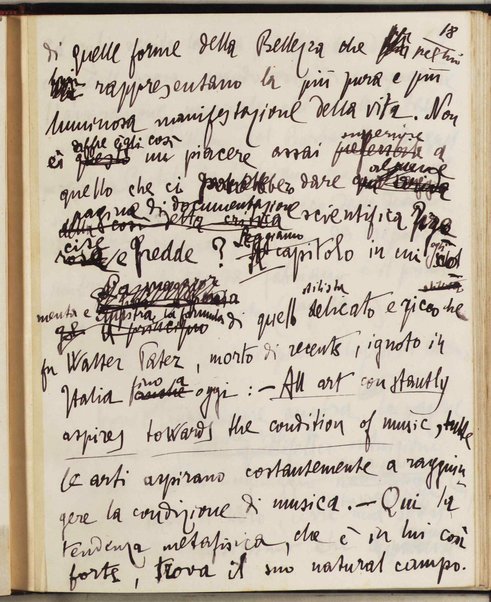 18
di quelle forme della Bellezza che
rappresentano la più pura e più
luminosa manifestazione della vita. Non
offre egli così superiore
ci questo un piacere assai a
alcune
quello che ci potrebbero dare
pagina di documentazione
della critica scientifica
e fredde ? Leggiamo
capitolo in cui egli
stilista
menta e la formula di quel delicato e ricco che
fu Walter Pater, morto di recente, ignoto in
Italia sino a oggi : — All art constantly
aspires towards the condition of music, tutte
le arti aspirano costantemente a raggiun
gere la condizione di musica. — Qui la
tendenza metafisica, che è in lui così
forte, trova il suo natural campo.